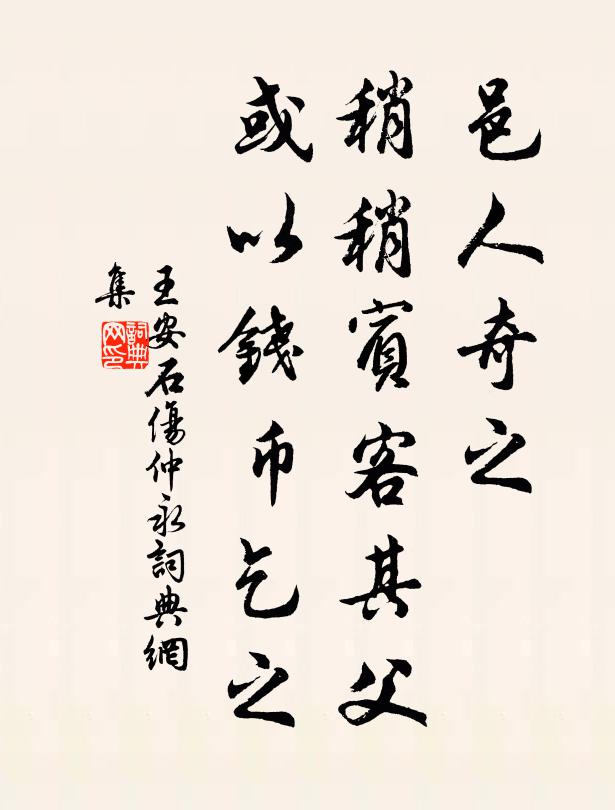 邑人奇之
稍稍賓客其父
或以錢币乞之
王安石傷仲永詞典網
集
詞典
网印